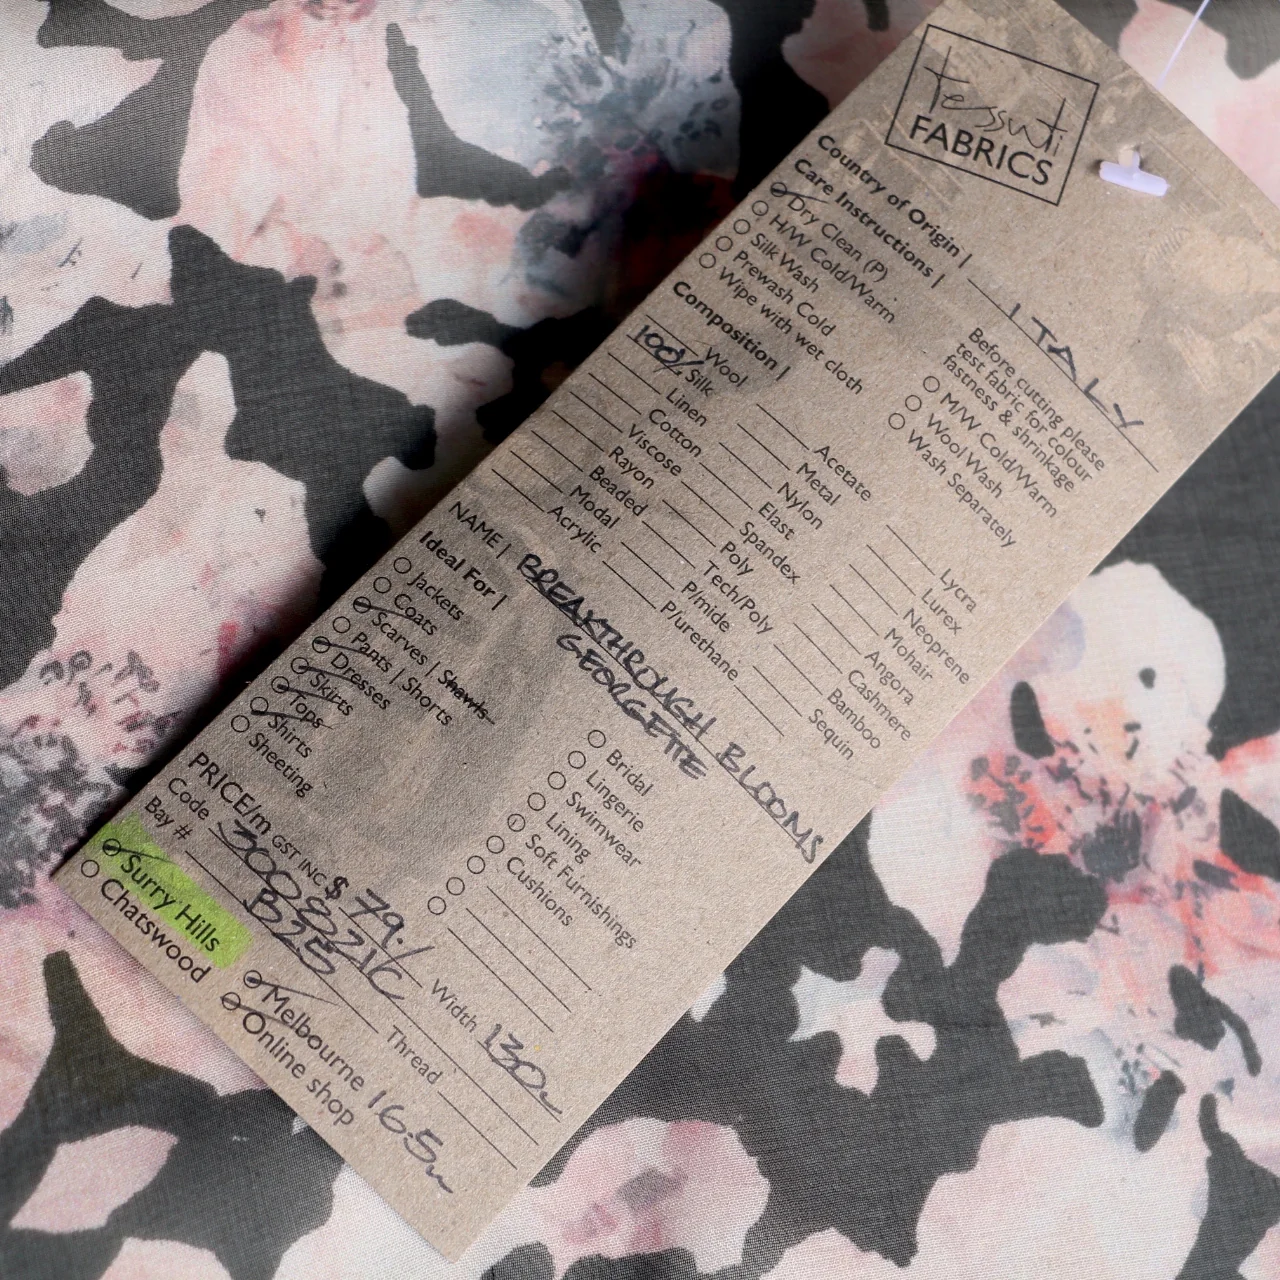 tessuti
FABRICS
Country of Origin | ITALY
Care Instructions |
Dry Clean (P)
H/W Cold/Warm
Silk Wash
Prewash Cold
Wipe with wet cloth
Before cutting please
test fabric for colour
fastness & shrinkage
M/W Cold/Warm
Wool Wash
Wash Separately
Composition |
Wool
100% Silk
Linen
Cotton
Viscose
Rayon
Beaded
Modal
Acrylic
Acetate
Metal
Nylon
Elast
Spandex
Poly
Tech/Poly
P/mide
P/urethane
Lycra
Lurex
Neoprene
Mohair
Angora
Cashmere
Bamboo
Sequin
NAME | BREAKTHROUGH BLOOMS
GEORGETTE
Ideal For |
Jackets
Coats
Scarves | Shawls
Pants | Shorts
Dresses
Skirts
Tops
Shirts
Sheeting
Bridal
Lingerie
Swimwear
Lining
Soft Furnishings
Cushions
PRICE/m GST INC $79./ Width 130~
Code 300821C Thread
Bay # B25
Surry Hills
Chatswood
Melbourne
Online shop 16.5m